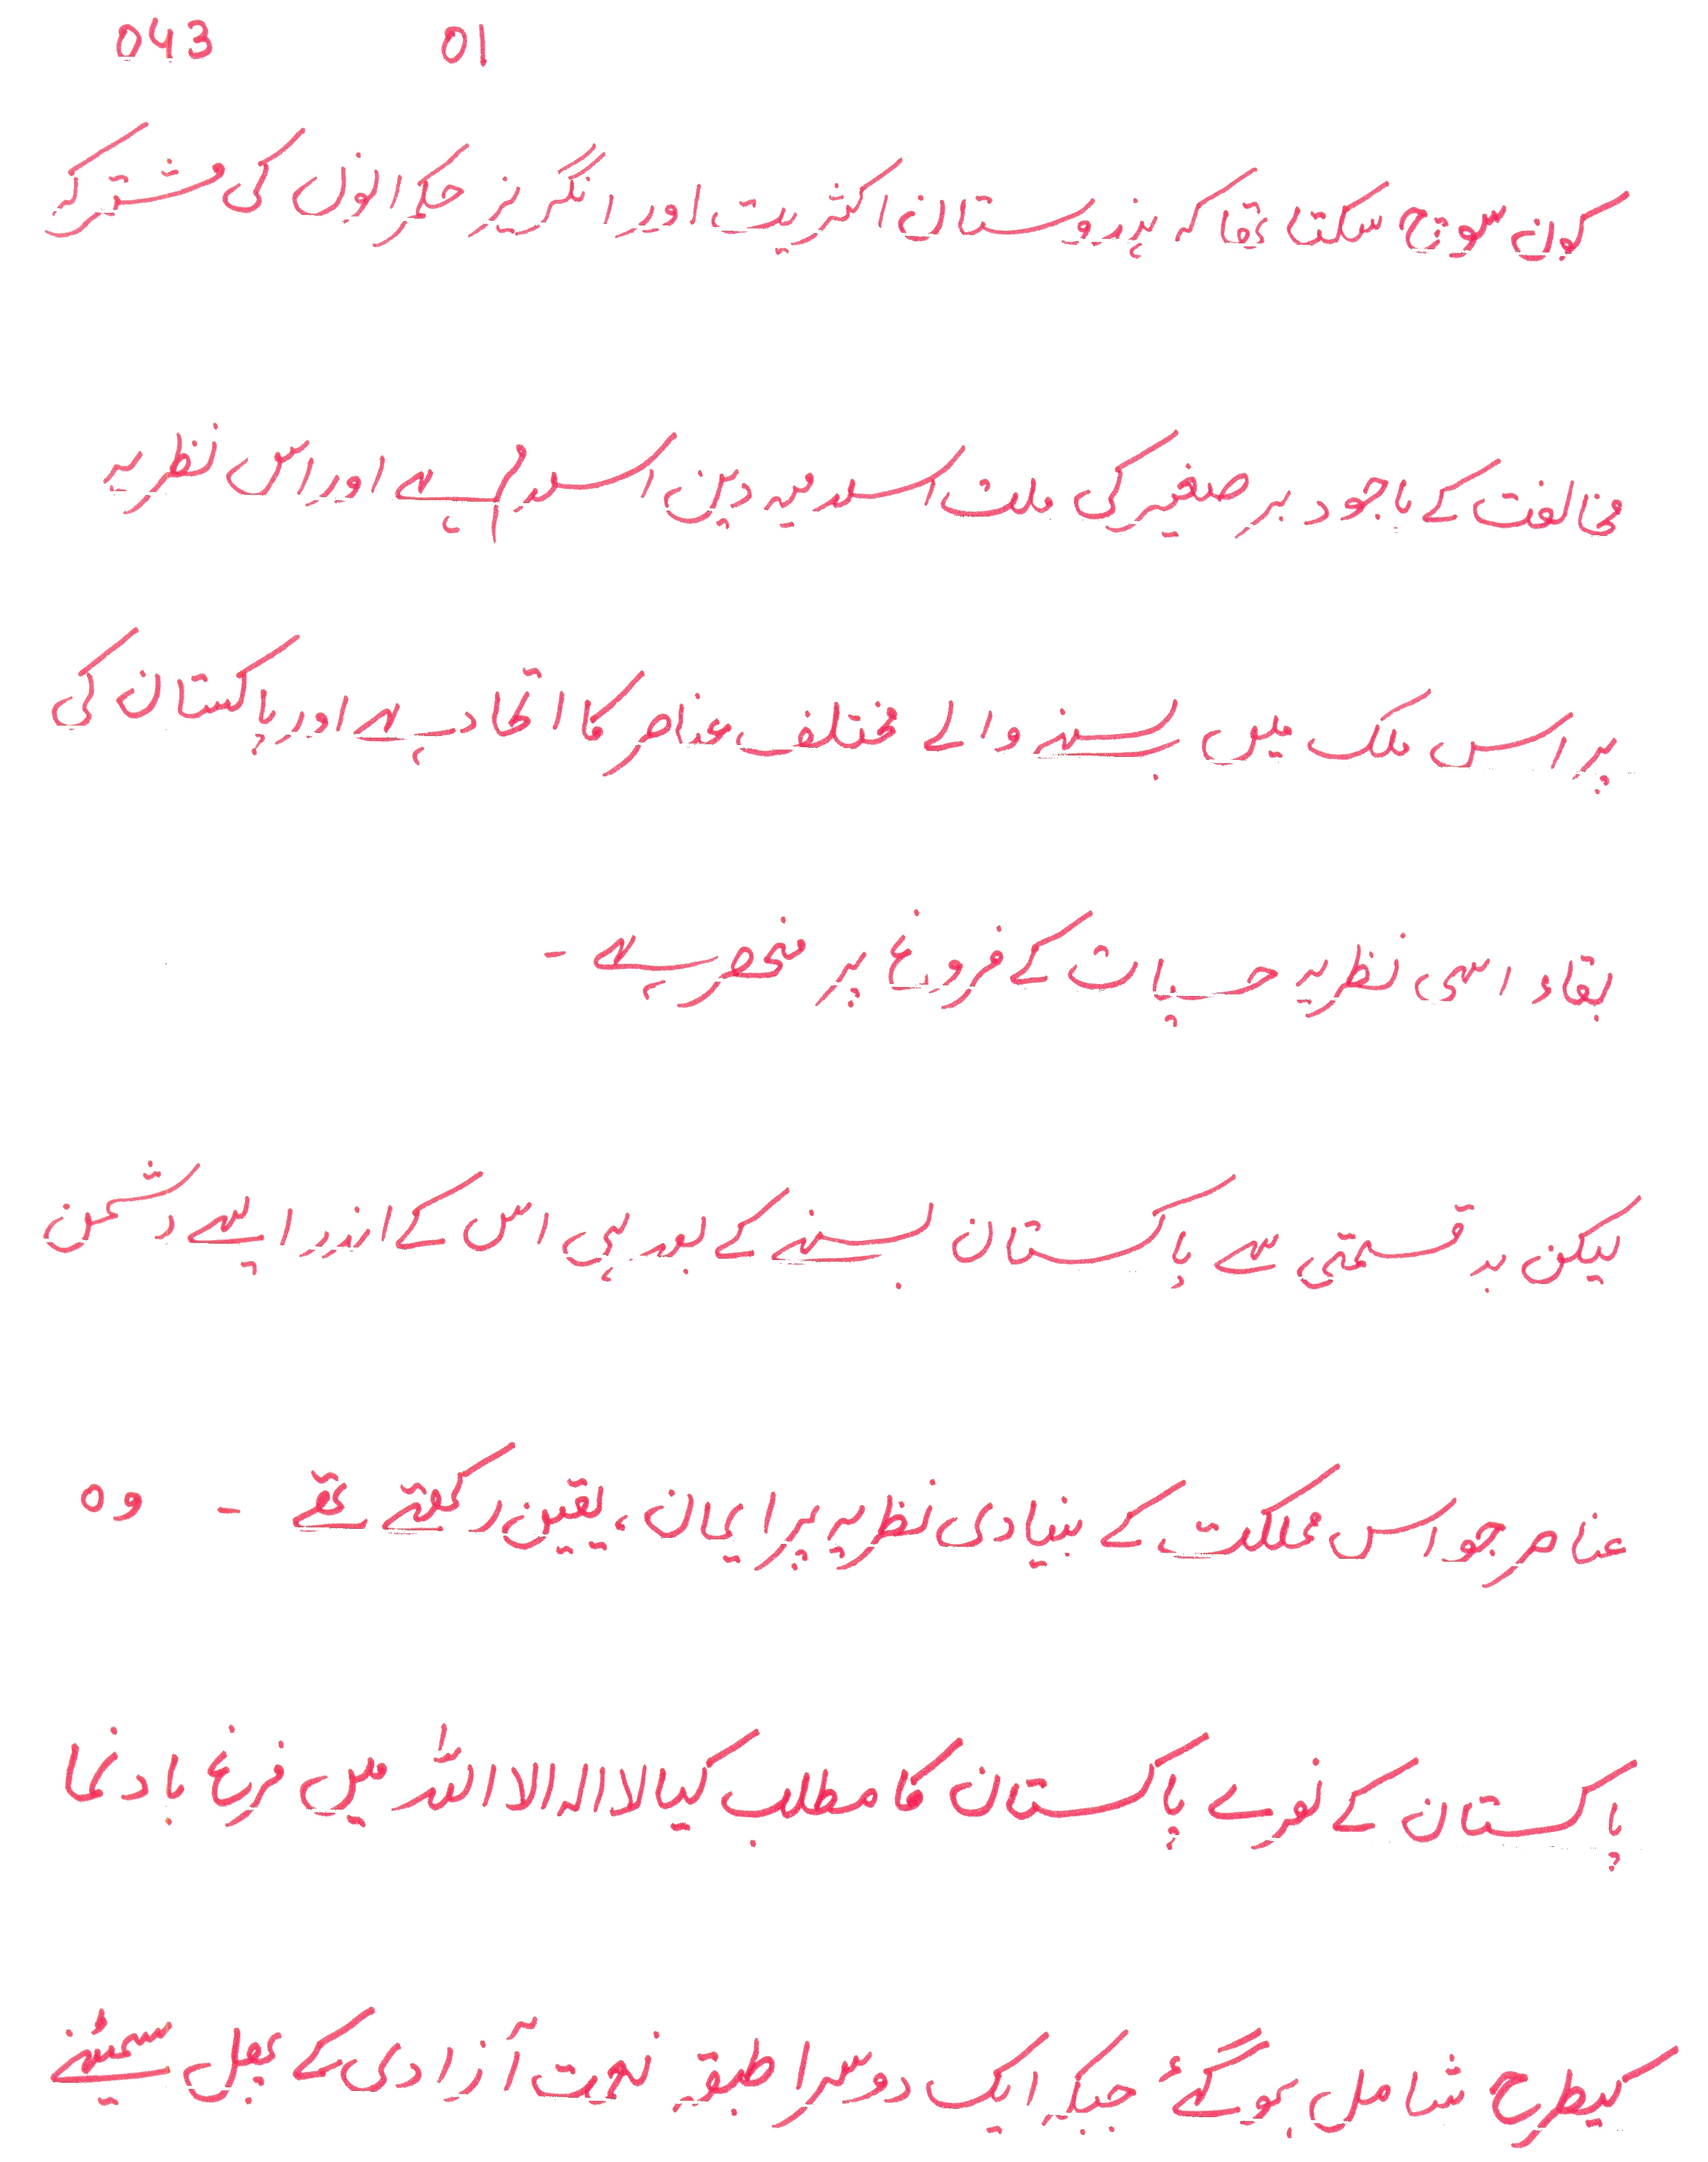 043 01
کون سوچ سکتا تھا کہ ہندوستان اکثریت اور انگریز حکمرانوں کی مشترکہ
مخالفت کے باجود برصغیر کی ملت اسلامیہ دین اسلام ہے اور اس نظریہ
پر اس ملک میں بسنے والے مختلف عناصر کا اتحاد ہے اور پاکستان کی
بقاء اسی نظریہ حیات کے فروغ پر منحصر ہے -
لیکن بدقسمتی سے پاکستان بسنے کے بعد ہی اس کے اندر ایسے دشمن
عناصر جو اس مملکت کے بنیادی نظریہ پر ایمان، یقین رکھتے تھے - وہ
پاکستان کے نعرے پاکستان کا مطلب کیا لا الہ الا اللہ میں مرغ بادنما
کیطرح شامل ہوگئے جبکہ ایک دوسرا طبقہ نحت آزادی کے پھل سمیٹنے